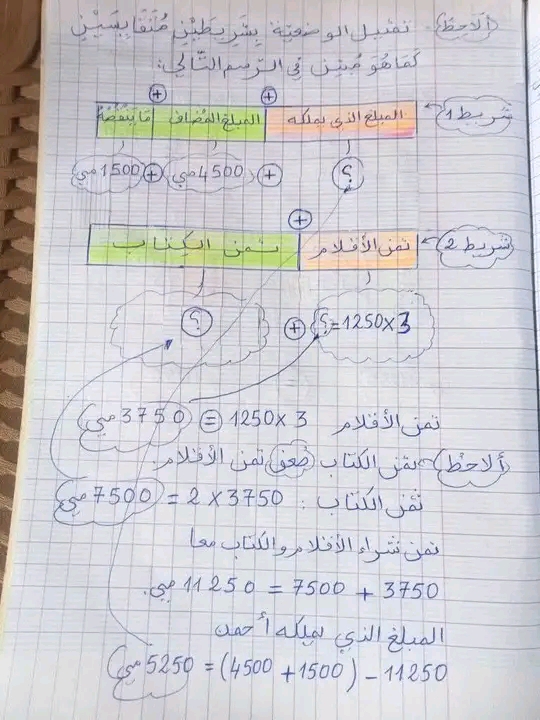 ألاحظ: تمثيل الوضعية بشريطين متقايسين
كما هو مبين في الرسم التالي:
شريط 1 المبلغ الذي يملكه + المبلغ المضاف + ما ينقصه
؟ + 4500 مي + 1500 مي
شريط 2 ثمن الأقلام + ثمن الكتاب
3×1250=؟ + ؟
ثمن الأقلام 3 ×1250 = 3750 مي
ألاحظ ثمن الكتاب ضعف ثمن الأقلام.
ثمن الكتاب: 3750 × 2 = 7500 مي
ثمن شراء الأقلام والكتاب معا
3750 + 7500 = 11250 مي.
المبلغ الذي يملكه أحمد
11250 - (1500+ 4500) = 5250 مي